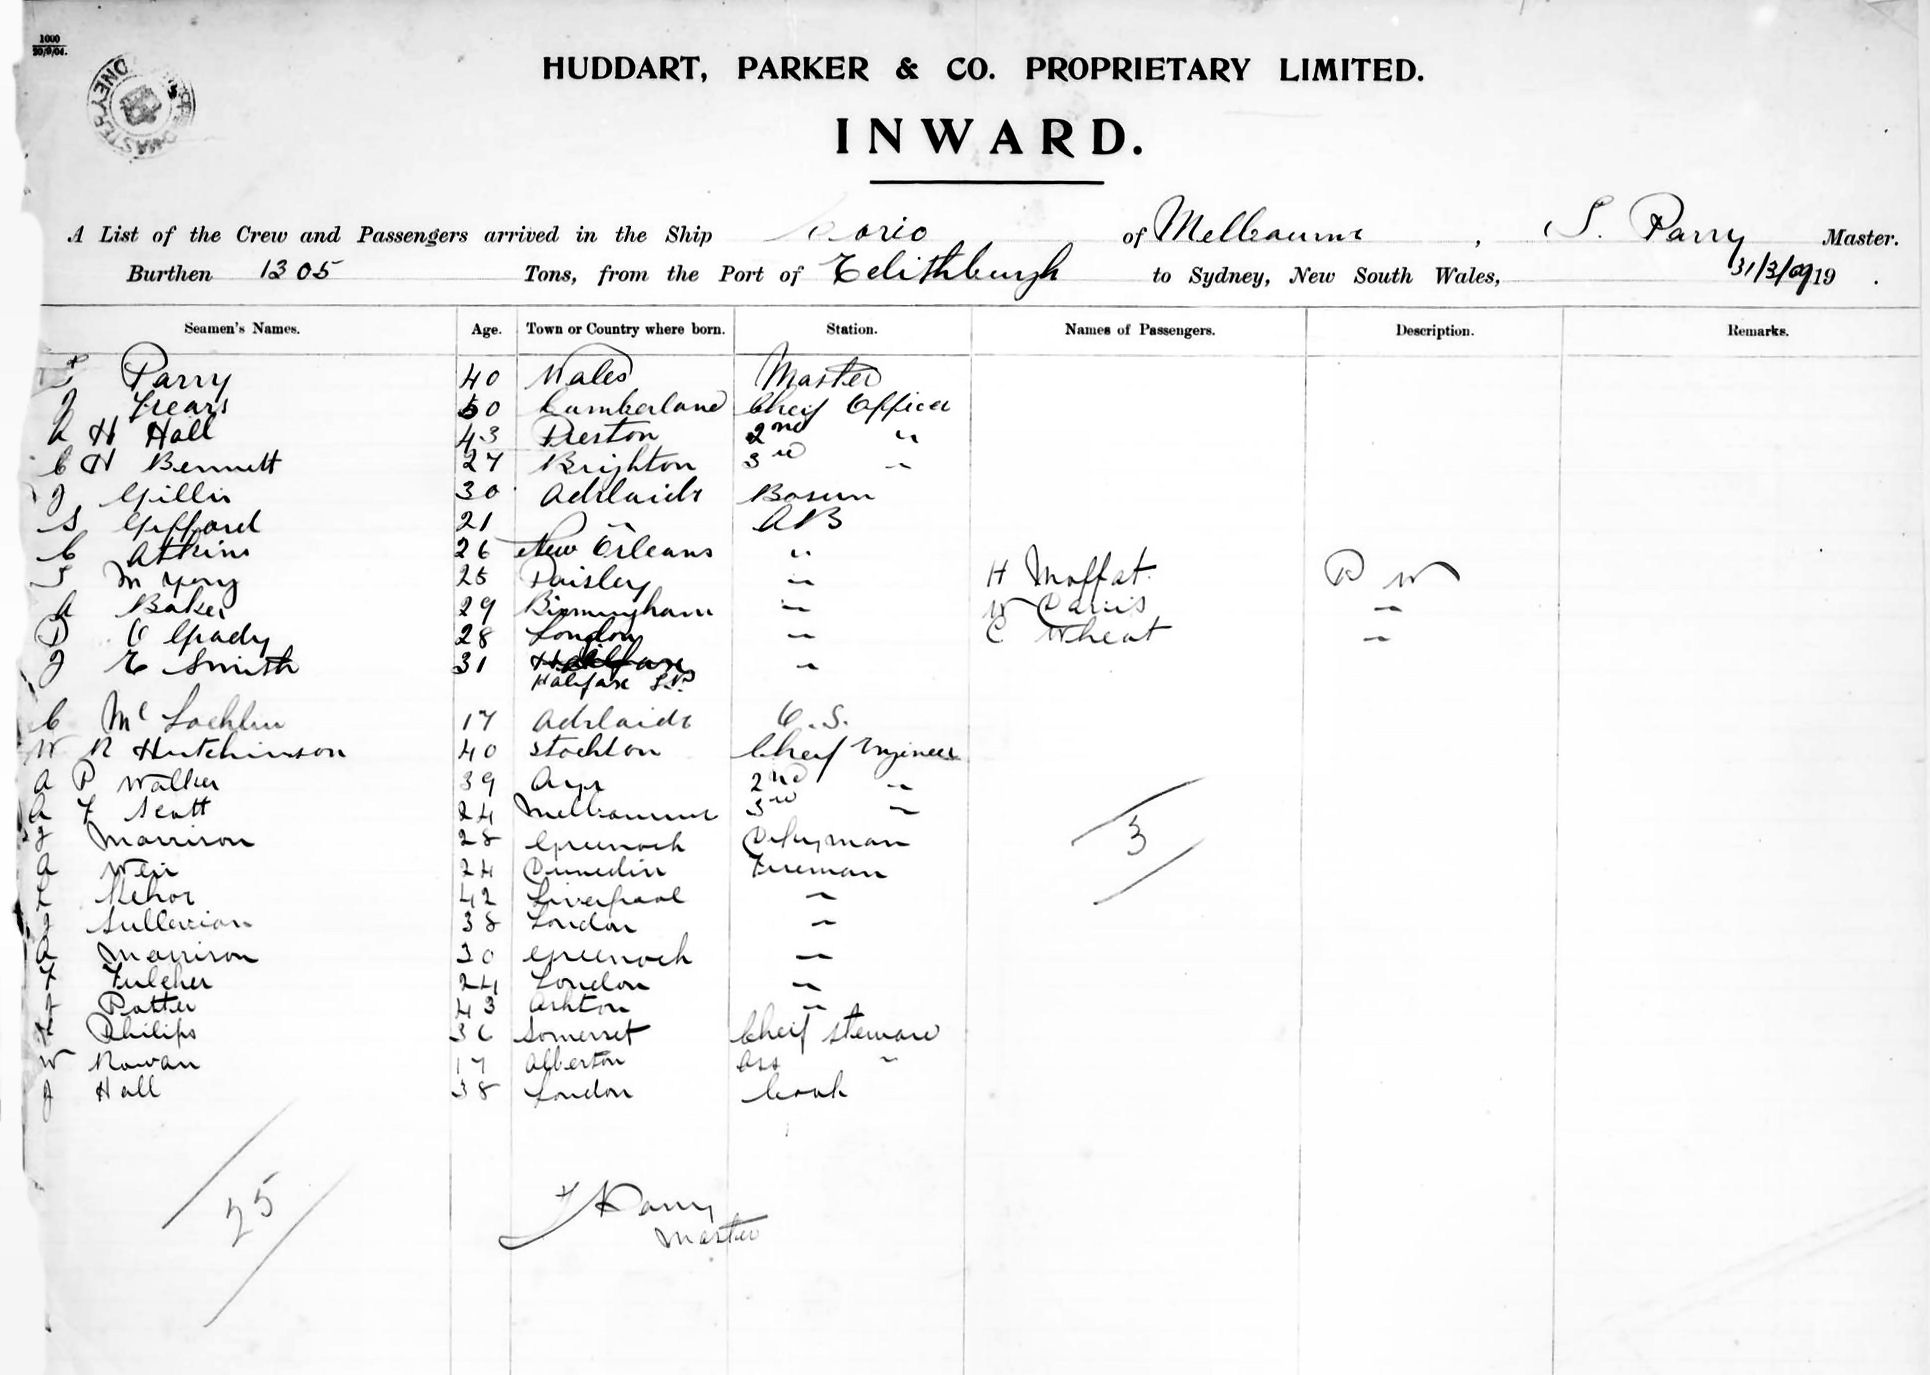 1000
20/9/04.
HUDDART, PARKER & CO. PROPRIETARY LIMITED.
INWARD.
A List of the Crew and Passengers arrived in the Ship Corio of Melbourne, Parry Master.
Burthen 1305 Tons, from the Port of Edithburgh to Sydney, New South Wales, 31/3/09 19 .
Seamen's Names. Age. Town or Country where born. Station. Names of Passengers. Description. Remarks.
Parry 40 Wales Master
J Frears 50 Cumberland Cheif Officer
A H Hall 43 Preston 2nd "
C H Bennett 27 Brighton 3rd "
J Gillis 30 Adelaide Bosun
S Gifford 21 " AB
C Atkins 26 New Orleans "
25 Paisley " H Moffat
A Baker 29 Birmingham " W Davis "
D O Grady 28 London " C Wheat "
J E Smith 31 Halifax "
C Mc Lachlan 17 Adelaide O.S.
W R Hutchinson 40 Stockton Cheif Engineer
A P Walker 39 Ayr 2nd "
A F Scott 24 Melbourne 3rd "
J Morrison 28 Greenock Dkyman
A Weir 24 Dunedin Fireman
42 Liverpool "
J Sullivan 38 London "
A Morrison 30 Greenock "
F Fulcher 24 London "
Potter 43 Ashton "
Philips 36 Somerset Cheif Steward
W Rowan 17 Alberton Ass "
J Hall 38 London Cook
3
25
Parry
Master